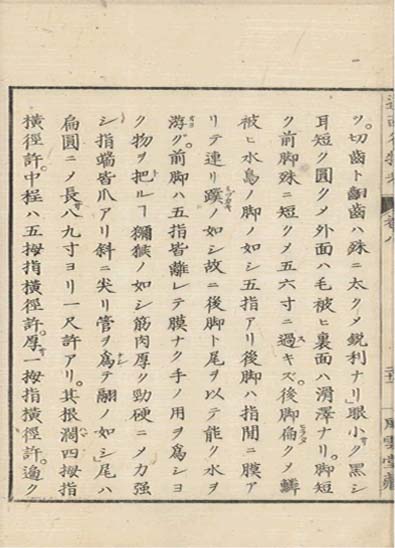 ツ。切齒ト齗齒ハ殊ニ太クメ鋭利ナリ」眼小ク黒シ
耳短ク圓クメ外面ハ毛被ヒ裏面ハ滑澤ナリ。脚短
ク前脚殊ニ短クメ五六寸ニ過キズ。後脚扁クメ鱗
被ヒ水鳥ノ脚ノ如シ五指アリ後脚ハ指間ニ膜ア
リテ連リ蹼ノ如シ故ニ後脚ト尾ヲ以テ能ク水ヲ
游グ。前脚ハ五指皆離レテ膜ナク手ノ用ヲ為シヨ
ク物ヲ把ルヿ獼猴ノ如シ筋肉厚ク勁硬ニメ力強
シ指端皆爪アリ斜ニ尖リ管ヲ為テ翮ノ如シ」尾ハ
扁圓ニメ長八九寸ヨリ一尺許アリ。其根濶四拇指
横徑許。中程ハ五拇指横徑許。厚一拇指横徑許。遍ク